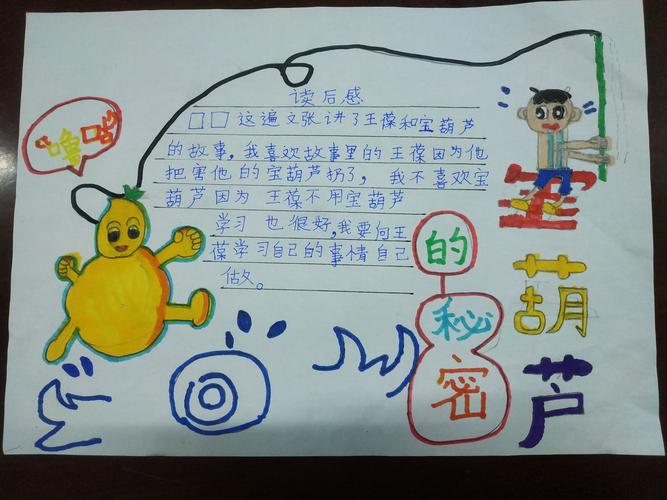 宝葫芦
的秘密
“噜咕”
读后感
□□这遍文张讲了王葆和宝葫芦
的故事，我喜欢故事里的王葆因为他
把害他的宝葫芦扔了，我不喜欢宝
葫芦因为王葆不用宝葫芦
学习也很好，我要向王
葆学习自己的事情自己
做。